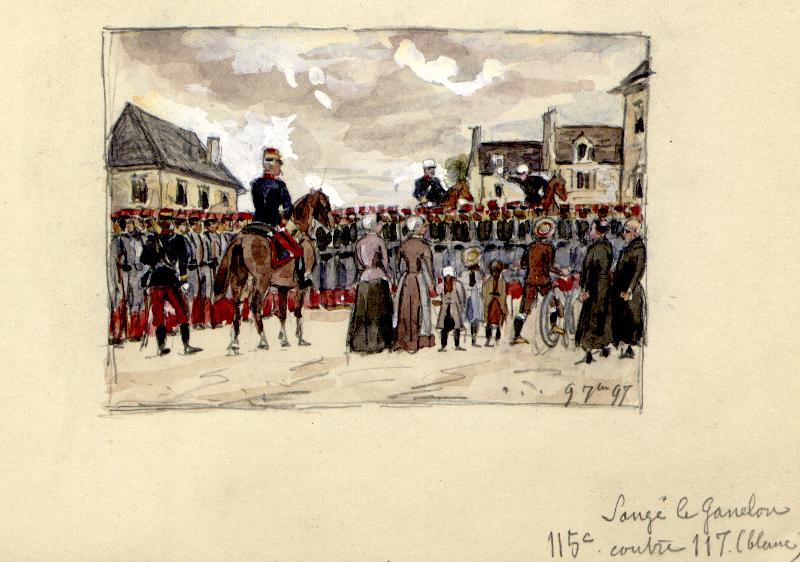 9 7bre 97
Sougé le Ganelon
115e. contre 117. (blanc)